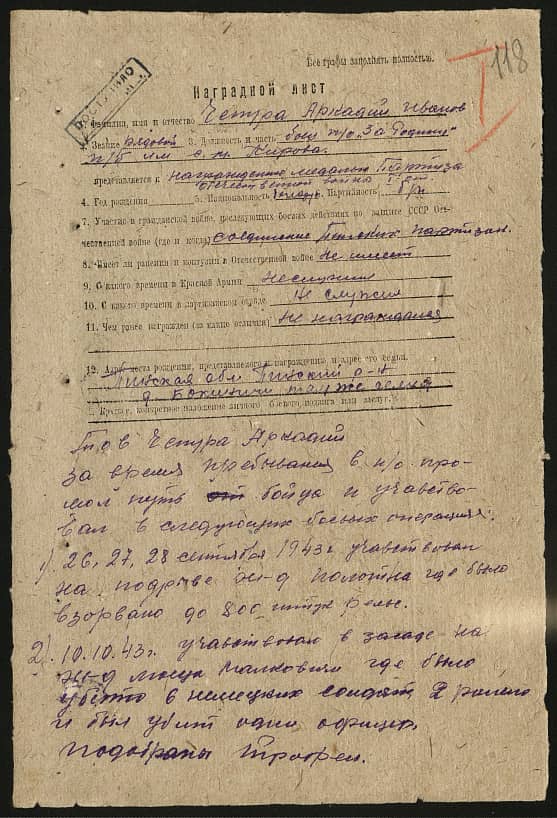 118
Все графы заполнять полностью.
ПОСТУПИЛО
Наградной лист
1. Фамилия, имя и отчество Четра Аркадий Иванов
2. Звание рядовой 3. Должность и часть боец п/о "За Родину"
п/б им с. м. Кирова.
представляется к награждению медалью Партиза
отечественной война
4. Год рождения 5. Национальность 6. Партийность б/п
7. Участие в гражданской войне, последующих боевых действиях по защите СССР Оте-
чественной войне (где и когда) соединение Пинских партизан.
8. Имеет ли ранения и контузии в Отечественной войне не имеет
9. С какого времени в Красной Армии неслужил
10. С какого времени в партизанском отряде не служил
11. Чем ранее награжден (за какие отличия) не награждался
12. Адрес места рождения, представляемого к награждению и адрес его семьи.
Пинская обл Пинский р-н
д. тамже семья
I. Краткое, конкретное изложение личного боевого подвига или заслуг.
Тов Четра Аркадий
за время пребывания в п/о про-
шол путь бойца и учавство-
вал в следующих боевых операциях:
1) 26, 27, 28 сентября 1943 г учавствовал
на подрыве ж-д полотна где было
взорвано до 800 штук рельс.
2). 10.10.43 г. учавствовал в засаде на
ж-д Малковичи где было
убито 8 немецких солдат 2 ранено
и был убит один офицер.
Подобраны трофеи.